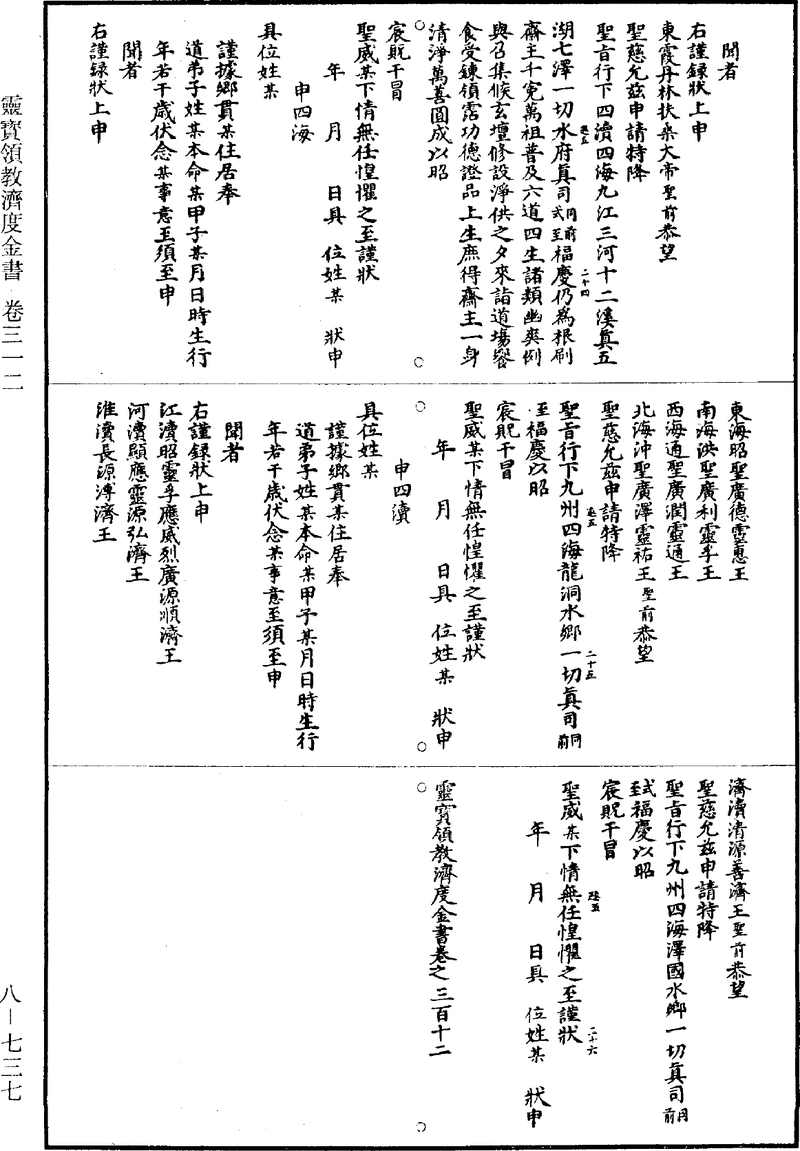 聞者
右謹録狀上申
東霞丹林扶桒大帝聖前恭望
聖慈允兹申請特降
聖旨行下四瀆四海九江三河十二溪真五
湖七澤一切水府真司同前式至福慶仍為根刷
齋主千寃萬祖普及六道四生諸類幽爽例
與召集候玄壇修設淨供之夕來詣道場饗
食受鍊領霑功德證品上生庶得齋主一身
清淨萬善圓成以昭
宸貺干冒
聖威某下情無任惶懼之至謹狀
年 月 日具 位姓某 狀申
申四海
具位姓某
謹據鄉貫某住居奉
道弟子姓某本命某甲子某月日時生行
年若干歲伏念某事意至須至申
聞者
右謹録狀上申
東海昭聖廣德靈惠王
南海洪聖廣利靈孚王
西海通聖廣潤靈通王
北海沖聖廣澤靈祐王聖前恭望
聖慈允兹申請特降
聖旨行下九州四海龍洞水鄉一切真司同前
至福慶以昭
宸貺干冒
聖威某下情無任惶懼之至謹狀
年 月 日具 位姓某 狀申
申四瀆
具位姓某
謹據鄉貫某住居奉
道弟子姓某本命某甲子某月日時生行
年若干歲伏念某事意至須至申
聞者
右謹録狀上申
江瀆昭靈孚應威烈廣源順濟王
河瀆顯應靈源弘濟王
淮瀆長源溥濟王
濟瀆清源善濟王聖前恭望
聖慈允兹申請特降
聖旨行下九州四海澤國水鄉一切真司同前
式至福慶以昭
宸貺干冒
聖威某下情無任惶懼之至謹狀
年 月 日具 位姓某 狀申
靈寳領教濟度金書卷之三百十二
二十四
二十五
二十六
靈寶領教濟度金書 卷三一二
八－七三七